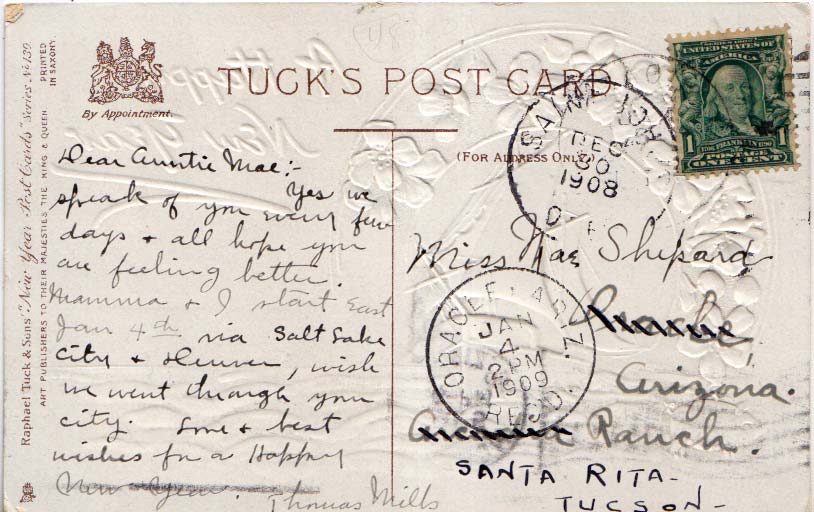 Raphael Tuck & Sons' "New Year Post Cards" Series No 139.
ART PUBLISHERS TO THEIR MAJESTIES THE KING & QUEEN.
PRINTED
IN SAXONY.
By Appointment.
TUCK'S POST CARD
(FOR ADDRESS ONLY)
A Happy
New Year
Dear Auntie Mae:-
Yes we
speak of you every few
days & all hope you
are feeling better.
Mamma & I start East
Jan 4th via Salt Lake
City & Denver, wish
we went through your
city. Love & best
wishes for a Happy
New Year. Thomas Mills
SAINT
DEC
30
1908
UNITED STATES OF
AMERICA
1 1
FRANKLIN
POSTAGE
ONE CENT
Miss Mae Shepard
Arizona.
Ranch.
SANTA RITA-
TUCSON-
ORACLE, ARIZ.
JAN
4
2 PM
1909
REC'D.